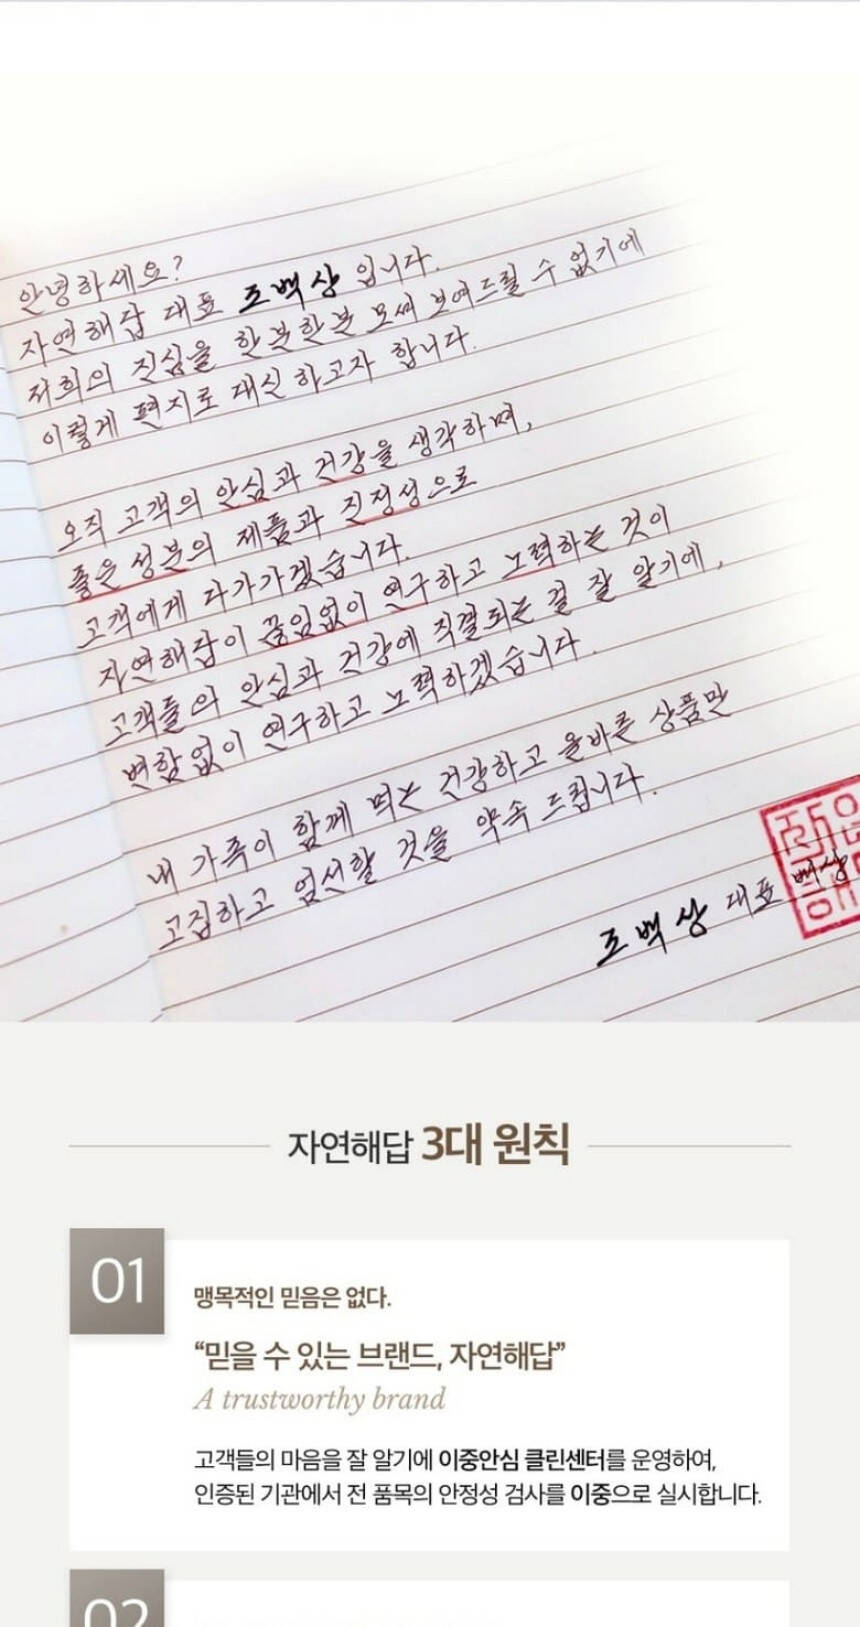 안녕하세요?
자연해답 대표 조백상 입니다.
저희의 진심을 한분한분 모셔 보여드릴 수 없기에
이렇게 편지로 대신 하고자 합니다.
오직 고객의 안심과 건강을 생각하며,
좋은 성분의 제품과 진정성으로
고객에게 다가가겠습니다.
자연해답이 끊임없이 연구하고 노력하는 것이
고객들의 안심과 건강에 직결되는 걸 잘 알기에,
변함없이 연구하고 노력하겠습니다.
내 가족이 함께 먹는 건강하고 올바른 상품만
고집하고 엄선할 것을 약속 드립니다.
조백상 대표 백상
자연해답 3대 원칙
01
맹목적인 믿음은 없다.
“믿을 수 있는 브랜드, 자연해답”
A trustworthy brand
고객들의 마음을 잘 알기에 이중안심 클린센터를 운영하여,
인증된 기관에서 전 품목의 안정성 검사를 이중으로 실시합니다.
02